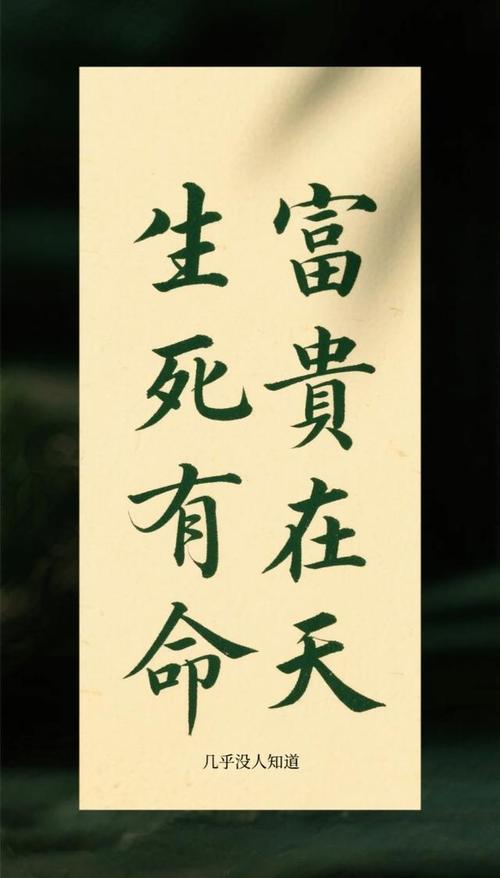 富貴在天
生死有命
几乎没人知道